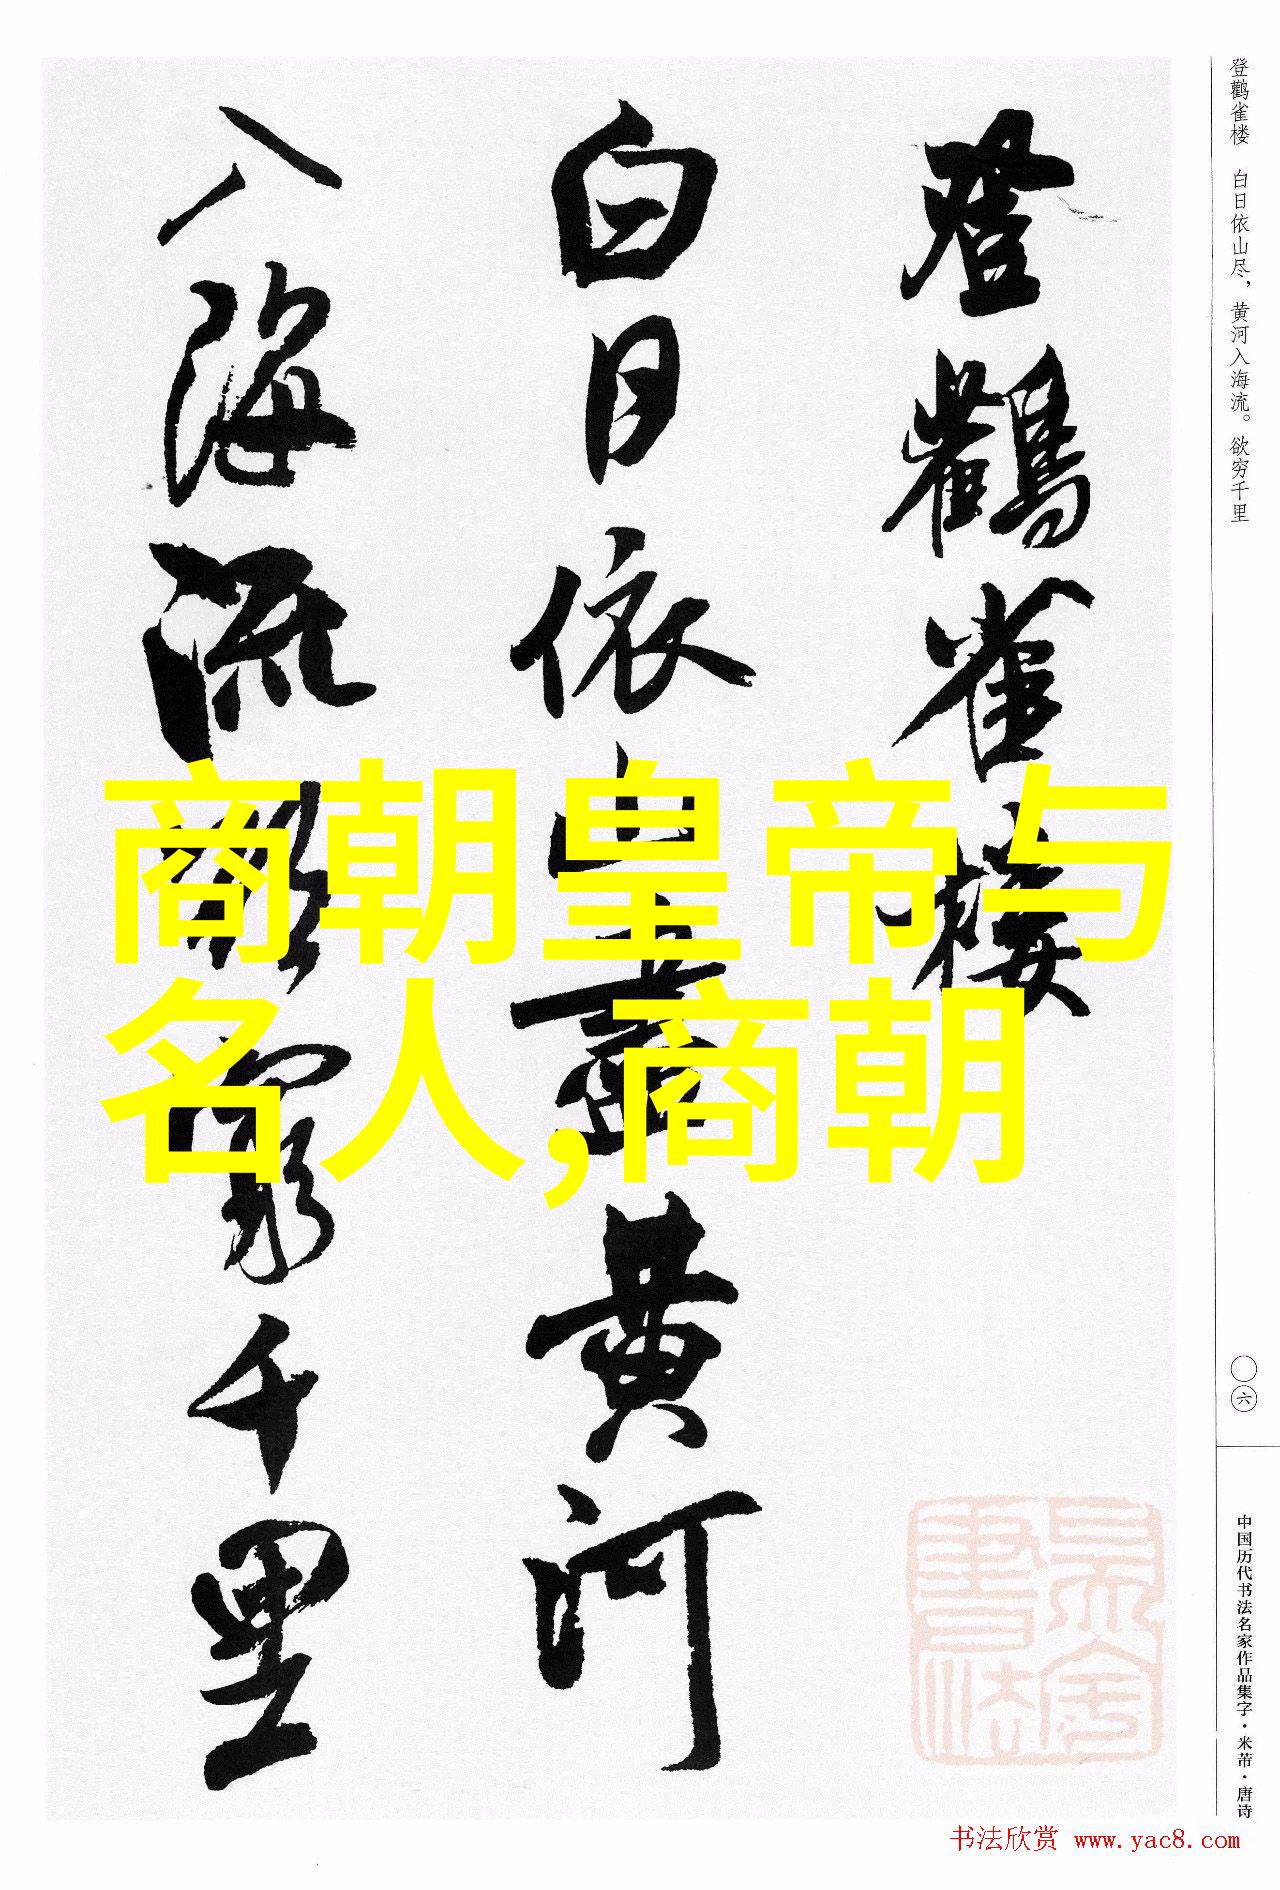 登鹳雀楼 白日依山尽，黄河入海流。欲穷千里
登鸛雀樓
白日依山盡黄河
入海流欲窮千里
商朝皇帝与
名人,商朝
〇六
中国历代书法名家作品集字·米芾·唐诗
书法欣赏 www.yac8.com